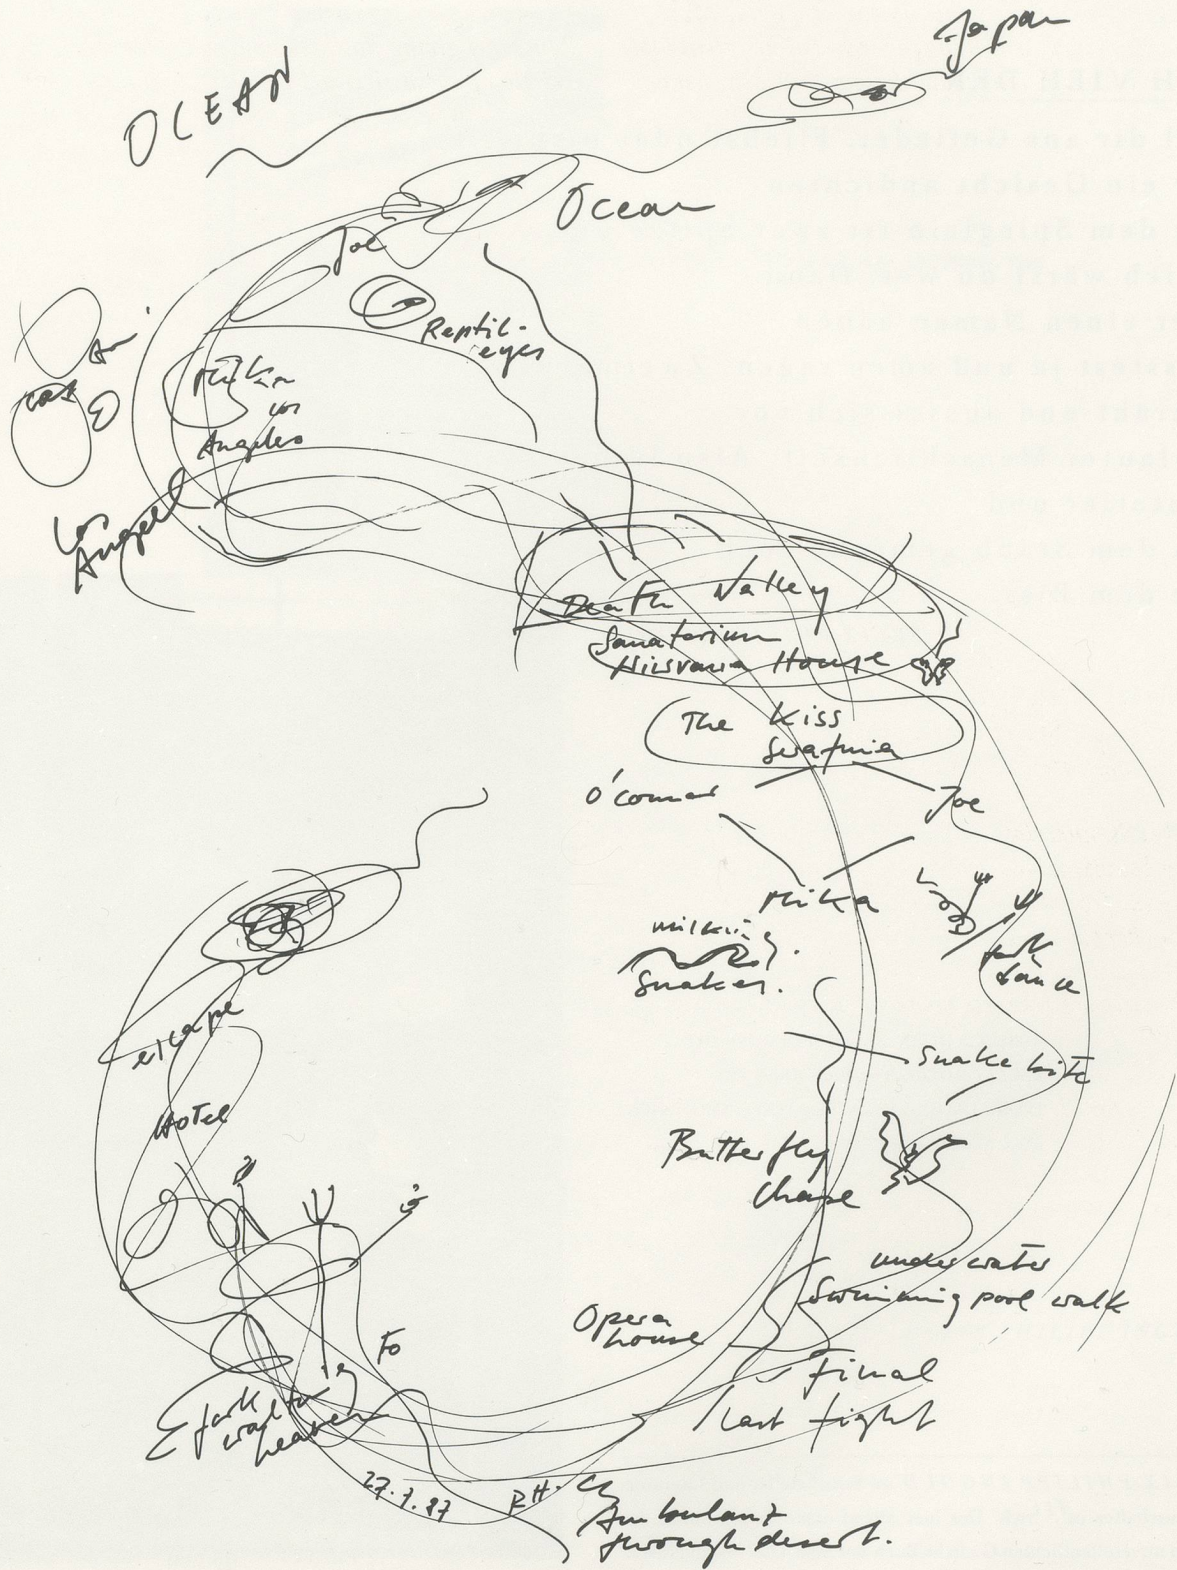 OCEAN
Japan
Ocean
Joe
Reptil-
eyes
Mika
Los
Angeles
Los
Angeles
Death Valley
Sanatorium
Nirvana House
The Kiss
Serafina
O'Connor
Joe
Mika
milking
Snakes.
fork
dance
escape
Snake bite
Hotel
Butterfly
Chase
under water
Swimming pool walk
Opera
house
Fo
Final
last fight
fork
waltz
heaven
27.7.87
RH.
Ambulanz
through desert.